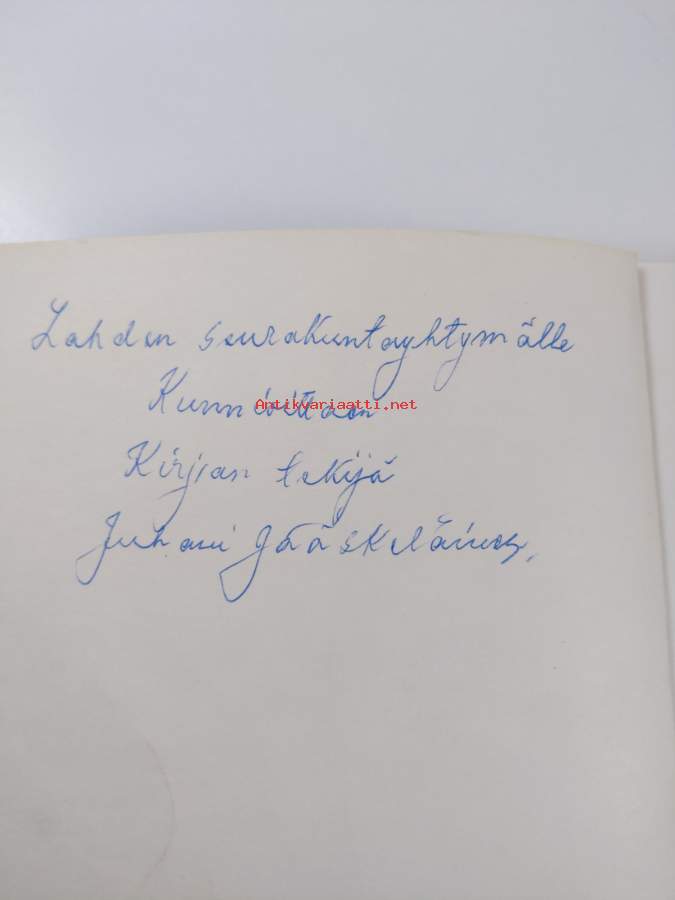 Lahden seurakuntayhtymälle
Kunnioittaen
Antikvariaatti.net
Kirjan tekijä
Juhani Jääskeläinen,